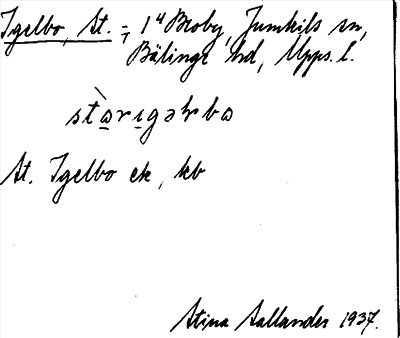 Igelbo, St. = 1⁴ Broby, Jumkils sn,
Bälinge hd, Upps. l.
St. Igelbo ek, kb
Stina Sallander 1937.